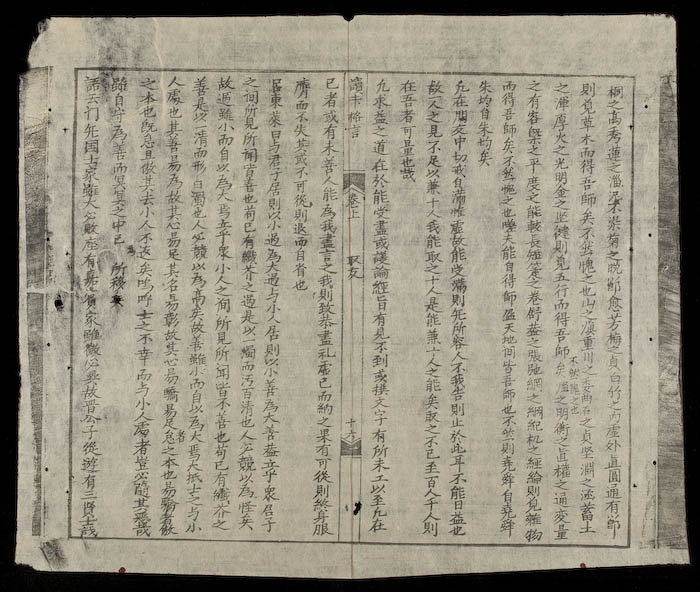 桐之高秀蓮之淄泥不染菊之晚節愈芳梅之貞白竹之內虛外直圓通有節
則覓草木而得吾師矣不然愧之也山之凝重川之委曲石之貞堅淵之涵蓄土
之渾厚火之光明金之堅健則覓五行而得吾師矣鑑之明衡之直權之通變量
不然愧之也
之有容槩之平度之能較長短簾之卷舒蓋之張弛綱之綱紀机之經綸則覓雜物
而得吾師矣不然愧之也嗟夫能自得師盈天地間皆吾師也不然則堯舜自堯舜
朱均自朱均矣
凡在朋友中切戒自滿惟虛故能受滿則无所容人不我告則止於此耳不能日益也
故一人之見不足以兼十人我能取之十人是能兼十人之能矣取之不已至百人千人則
在吾者可量也哉
凡求益之道在於能受盡或議論經旨有見不到或撰文字有所未工以至凡在
讀書格言 卷上 取友 十六
己者或有未善人能為我盡言之我則致恭盡礼虛己而納之果有可從則終身服
膺而不失其或不可從則退而自省也
呂東萊曰与君子居則以小過為大過与小人居則以小善為大善蓋立乎衆君子
之間所見所聞皆善也苟已有纖芥之過是以一濁而汚百清也人必競以為怪矣
故過雖小而自以為大焉立乎衆小人之間所見所聞皆不善也苟已有纖芥之
善是以一清而形百濁也人必競以為高矣故善雖小而自以為大焉大抵士之与小
人處也其善易為故其心易足其名易彰故其心易驕易足者怠之本也易驕者敖
之本也既怠且敖其去小人不遠矣嗚呼士之不幸而与小人處者豈必随其惡哉
雖自守為善而冥冥之中已 所移矣
語云門无国士家雖大必敗座有嘉賓家雖微必興故晋公子從遊有三賢士哉